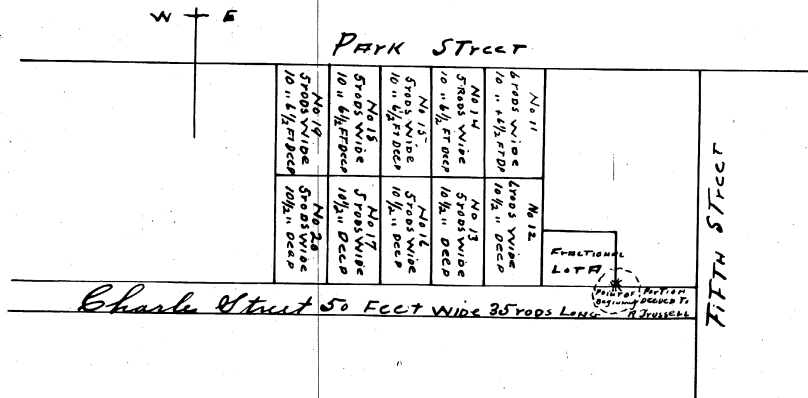 W E
PArK STreeT
No 19
5 rods Wide
10 " 6 1/2 FT Deep
No 15
5 rods Wide
10 " 6 1/2 FT Deep
No 15
5 rods Wide
10 " 6 1/2 FT Deep
No 14
5 Rods Wide
10 " 6 1/2 FT Deep
No 11
6 rods Wide
10 " + 6 1/2 FT DP
No 20
5 rods Wide
10 1/2 " Deep
No 17
5 rods Wide
10 1/2 " Deep
No 16
5 rods Wide
10 1/2 " Deep
No 13
5 rods Wide
10 1/2 " Deep
No 12
6 rods Wide
10 1/2 " Deep
FrACTionAL
LoT A
PoinT oF
Beginning
PorTion
Deeded To
R Trussell
Charles Street 50 FeeT Wide 35 rods Long
FiFTH STreeT